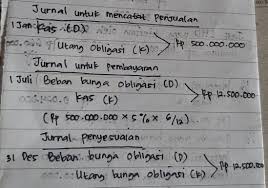 Jurnal untuk mencatat penjualan
1 Jan Kas (D)
Utang Obligasi (K) > Rp 500.000.000
Jurnal untuk pembayaran
1 Juli Beban bunga obligasi (D)
Kas (K) > Rp 12.500.000
(Rp 500.000.000 x 5% x 6/12)
Jurnal penyesuaian
31 Des Beban bunga obligasi (D)
Utang bunga obligasi (K) > Rp 12.500.000